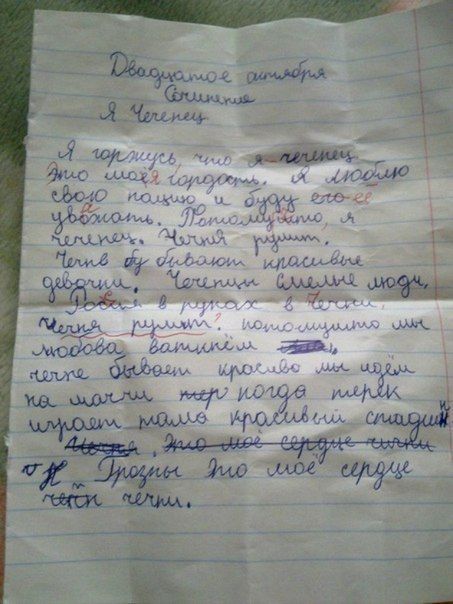 Двадцатое октября
Сочинение
Я Чеченец
Я горжусь, что я - чеченец
Это моея гордость. Я люблю
свою нацию и буду его ее
уважать. Потомушто, я
чеченец. Чечня румит.
Чечне бу бывают красивые
девочки. Чеченцы смелые люди.
Россия в руках в Чечни.
Чечня румит? потомушто мы
любова ваткнём
чечне бывает красиво мы идём
на маччи тер когда терек
играет тама красивый стадиин
Чечня, это моё сердце чични
Грозны это моё сердце
чечни.